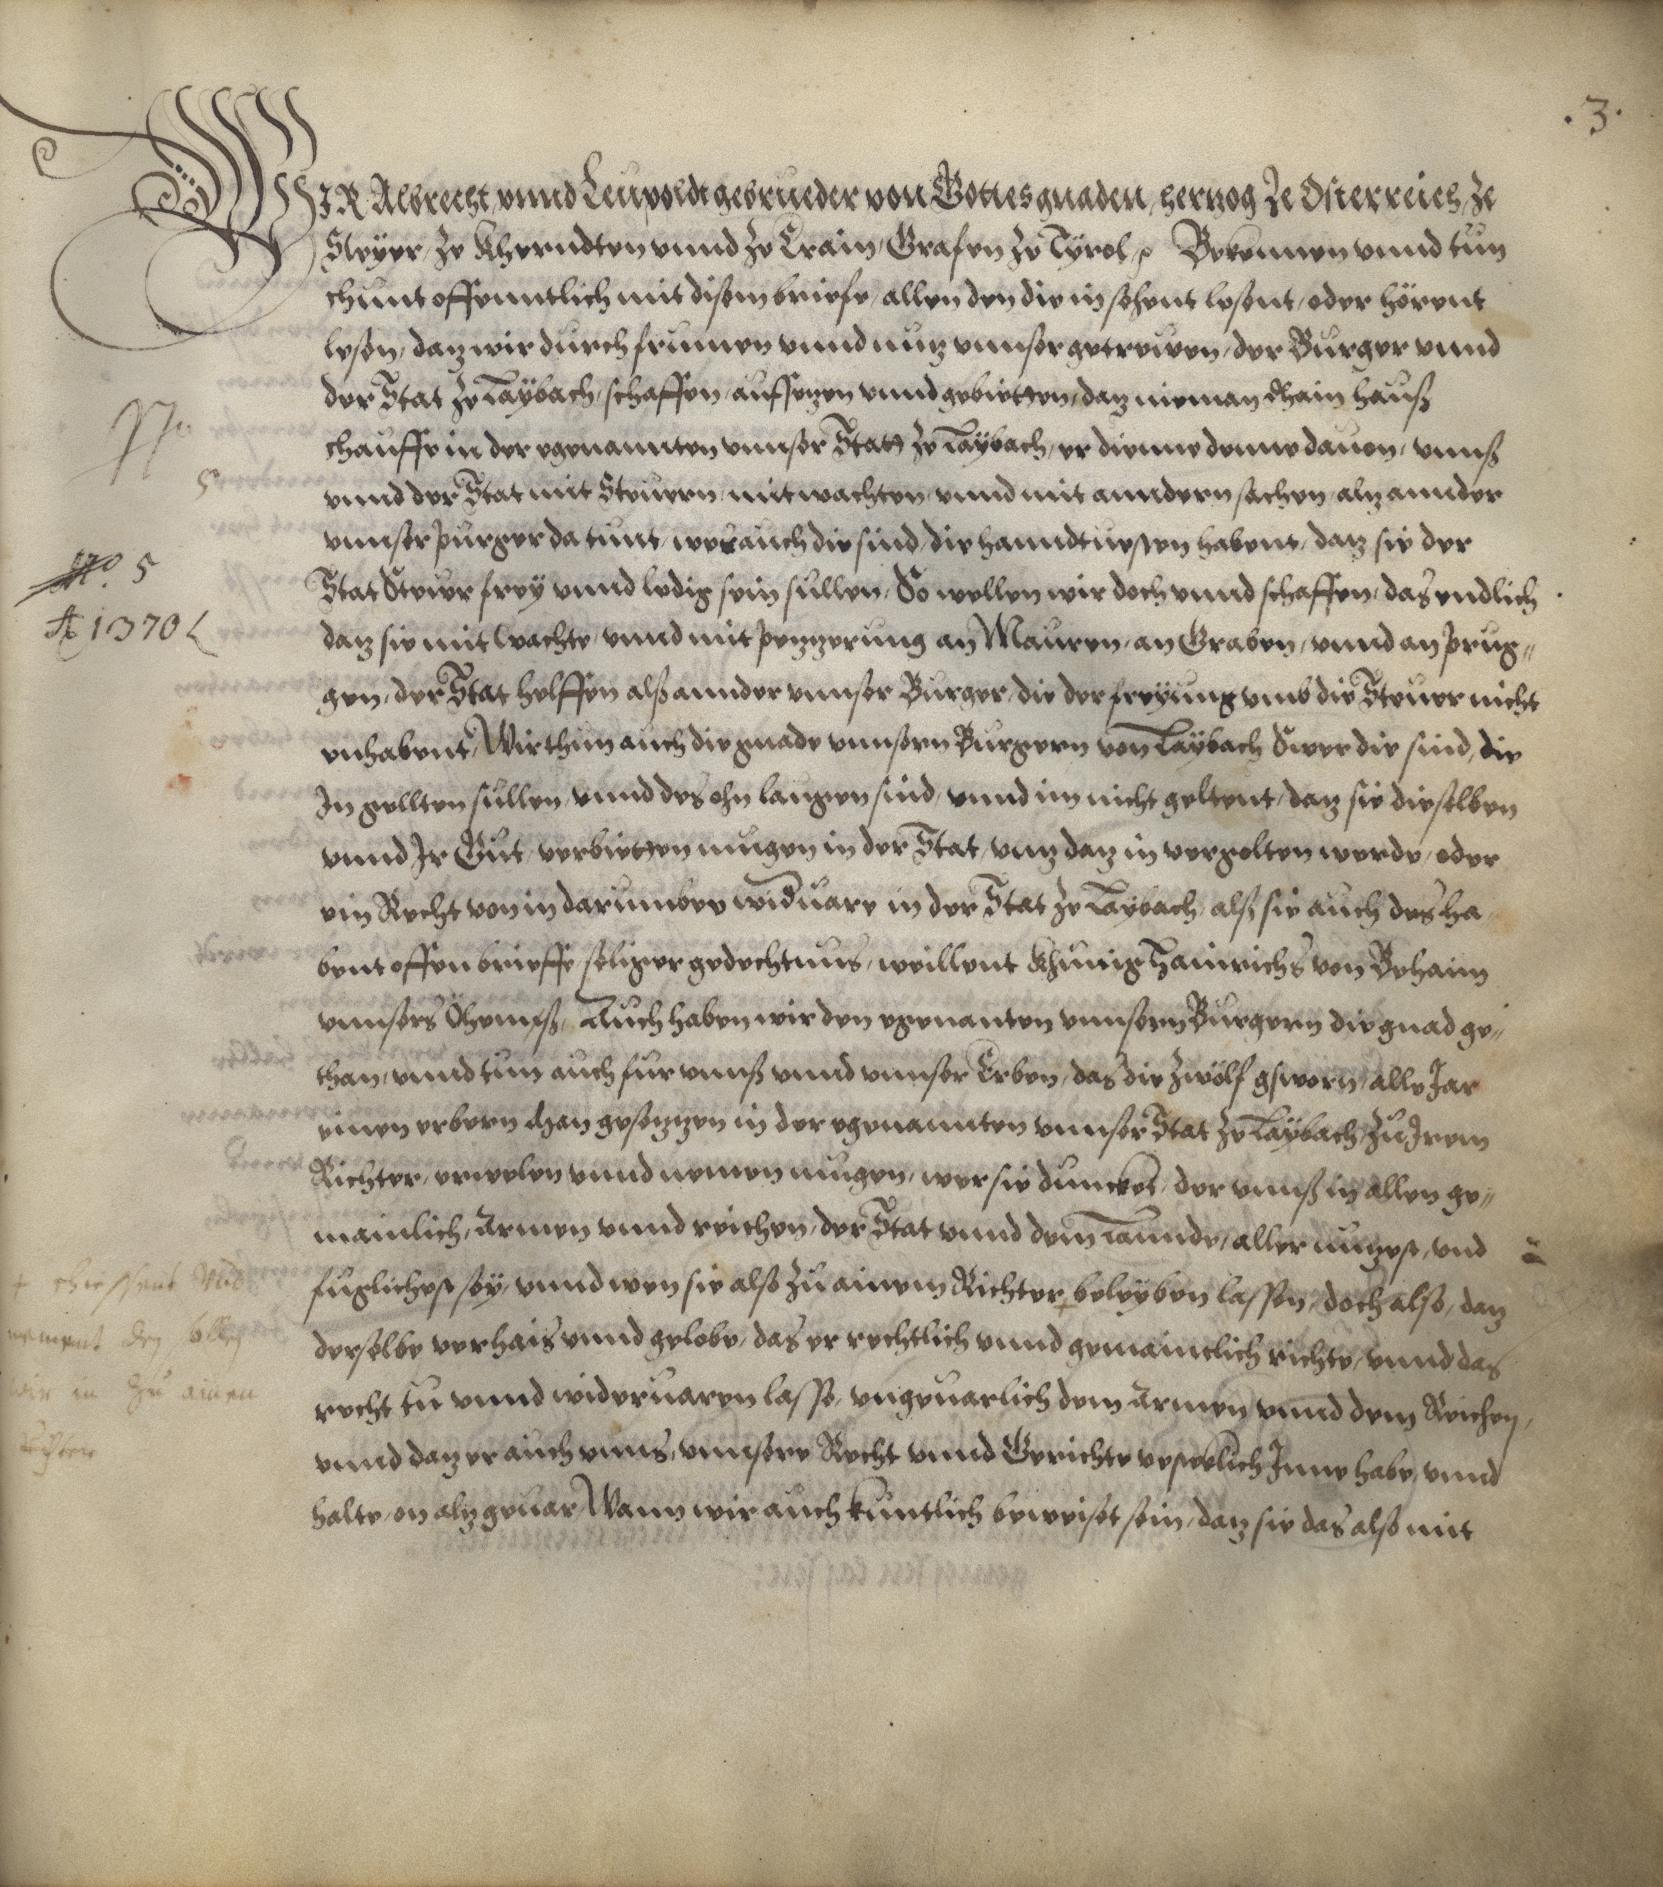 .3.
WIR Albrecht vnnd Leupoldt gebrueder von Gottes gnaden, hertzog Ze Osterreich, Ze
Steÿer, Ze Kherndten vnnd Ze Crain, Grafen Ze Tÿrol, Bekennen vnnd tun
chunt offenntlich mit disem briefe, allen den die in sehent lesent, oder hörent
lesen, daz wir durch frumen vnnd nutz vnnser getrewen, der Burger vnnd
der Stat Ze Laÿbach, schaffen, auffsezen vnnd gebietten, daz nieman khain hauß
chauffe in der egenannten vnnser Statt Ze Laÿbach, er dienne denne dauon, vnnß
vnnd der Stat mit Steuern, mit wachten, vnnd mit anndern sachen, alz annder
vnnser purger da tunt, wer auch die sind, die hanndtuesten habent, daz sie der
Stat Stewr freÿ vnnd ledig sein sullen, So wellen wir doch vnnd schaffen, das endlich
daz sie mit Wachte, vnnd mit pezzerung an Mauren, an Graben, vnnd an prug„
gen, der Stat helffen alß annder vnnser Burger, die der freÿung vmb die Steuer nicht
enhabent, Wir thun auch die gnade vnnsern Burgern von Laÿbach Swer die sind, die
In gellten sullen, vnnd des ohn laugen sind, vnnd im nicht geltent, daz sie dieselben
vnnd Ir Gut, verbietten mugen in der Stat, vnz daz in vergolten werde, oder
ein Recht von in darumben widuare in der Stat Ze Laÿbach, alß sie auch des ha„
bent offen brieffe, seliger gedechtnus, weillent Khunig Hainrichs von Behaim
vnnsers Öhemß, Auch haben wir den egenanten vnnsern Burgern die gnad ge„
than, vnnd tun auch fur vnnß vnnd vnnser Erben, das die Zwölf gsworn, alle Jar
einen erbern Man gesezzen in der egenannten vnnser Stat Ze Laÿbach, Zu Irem
Richter, erwelen vnnd nemen mugen, wer sie dunckt, der vnnß in allen ge„
mainlich, Armen vnnd reichen, der Stat vnnd dem Lannde, aller nutzest, vnd
fuglichest seÿ, vnnd wen sie also Zu ainem Richter beleyben lassen, doch also, daz
derselbe verhais vnnd gelobe, das er rechtlich vnnd gemaintlich richte, vnnd das
recht tu vnnd wideruaren lasse, vngeuarlich dem Armen vnnd dem Reichen,
vnnd daz er auch vnns, vnnsere Recht vnnd Gerichte vestelich Inne habe, vnnd
halte, on alz geuar, Wann wir auch kuntlich beweiset sein, daz sie das also mit
No
5
No. 5
Ao 1370
+ vnd
nement den sollen
wir in Zu ainen